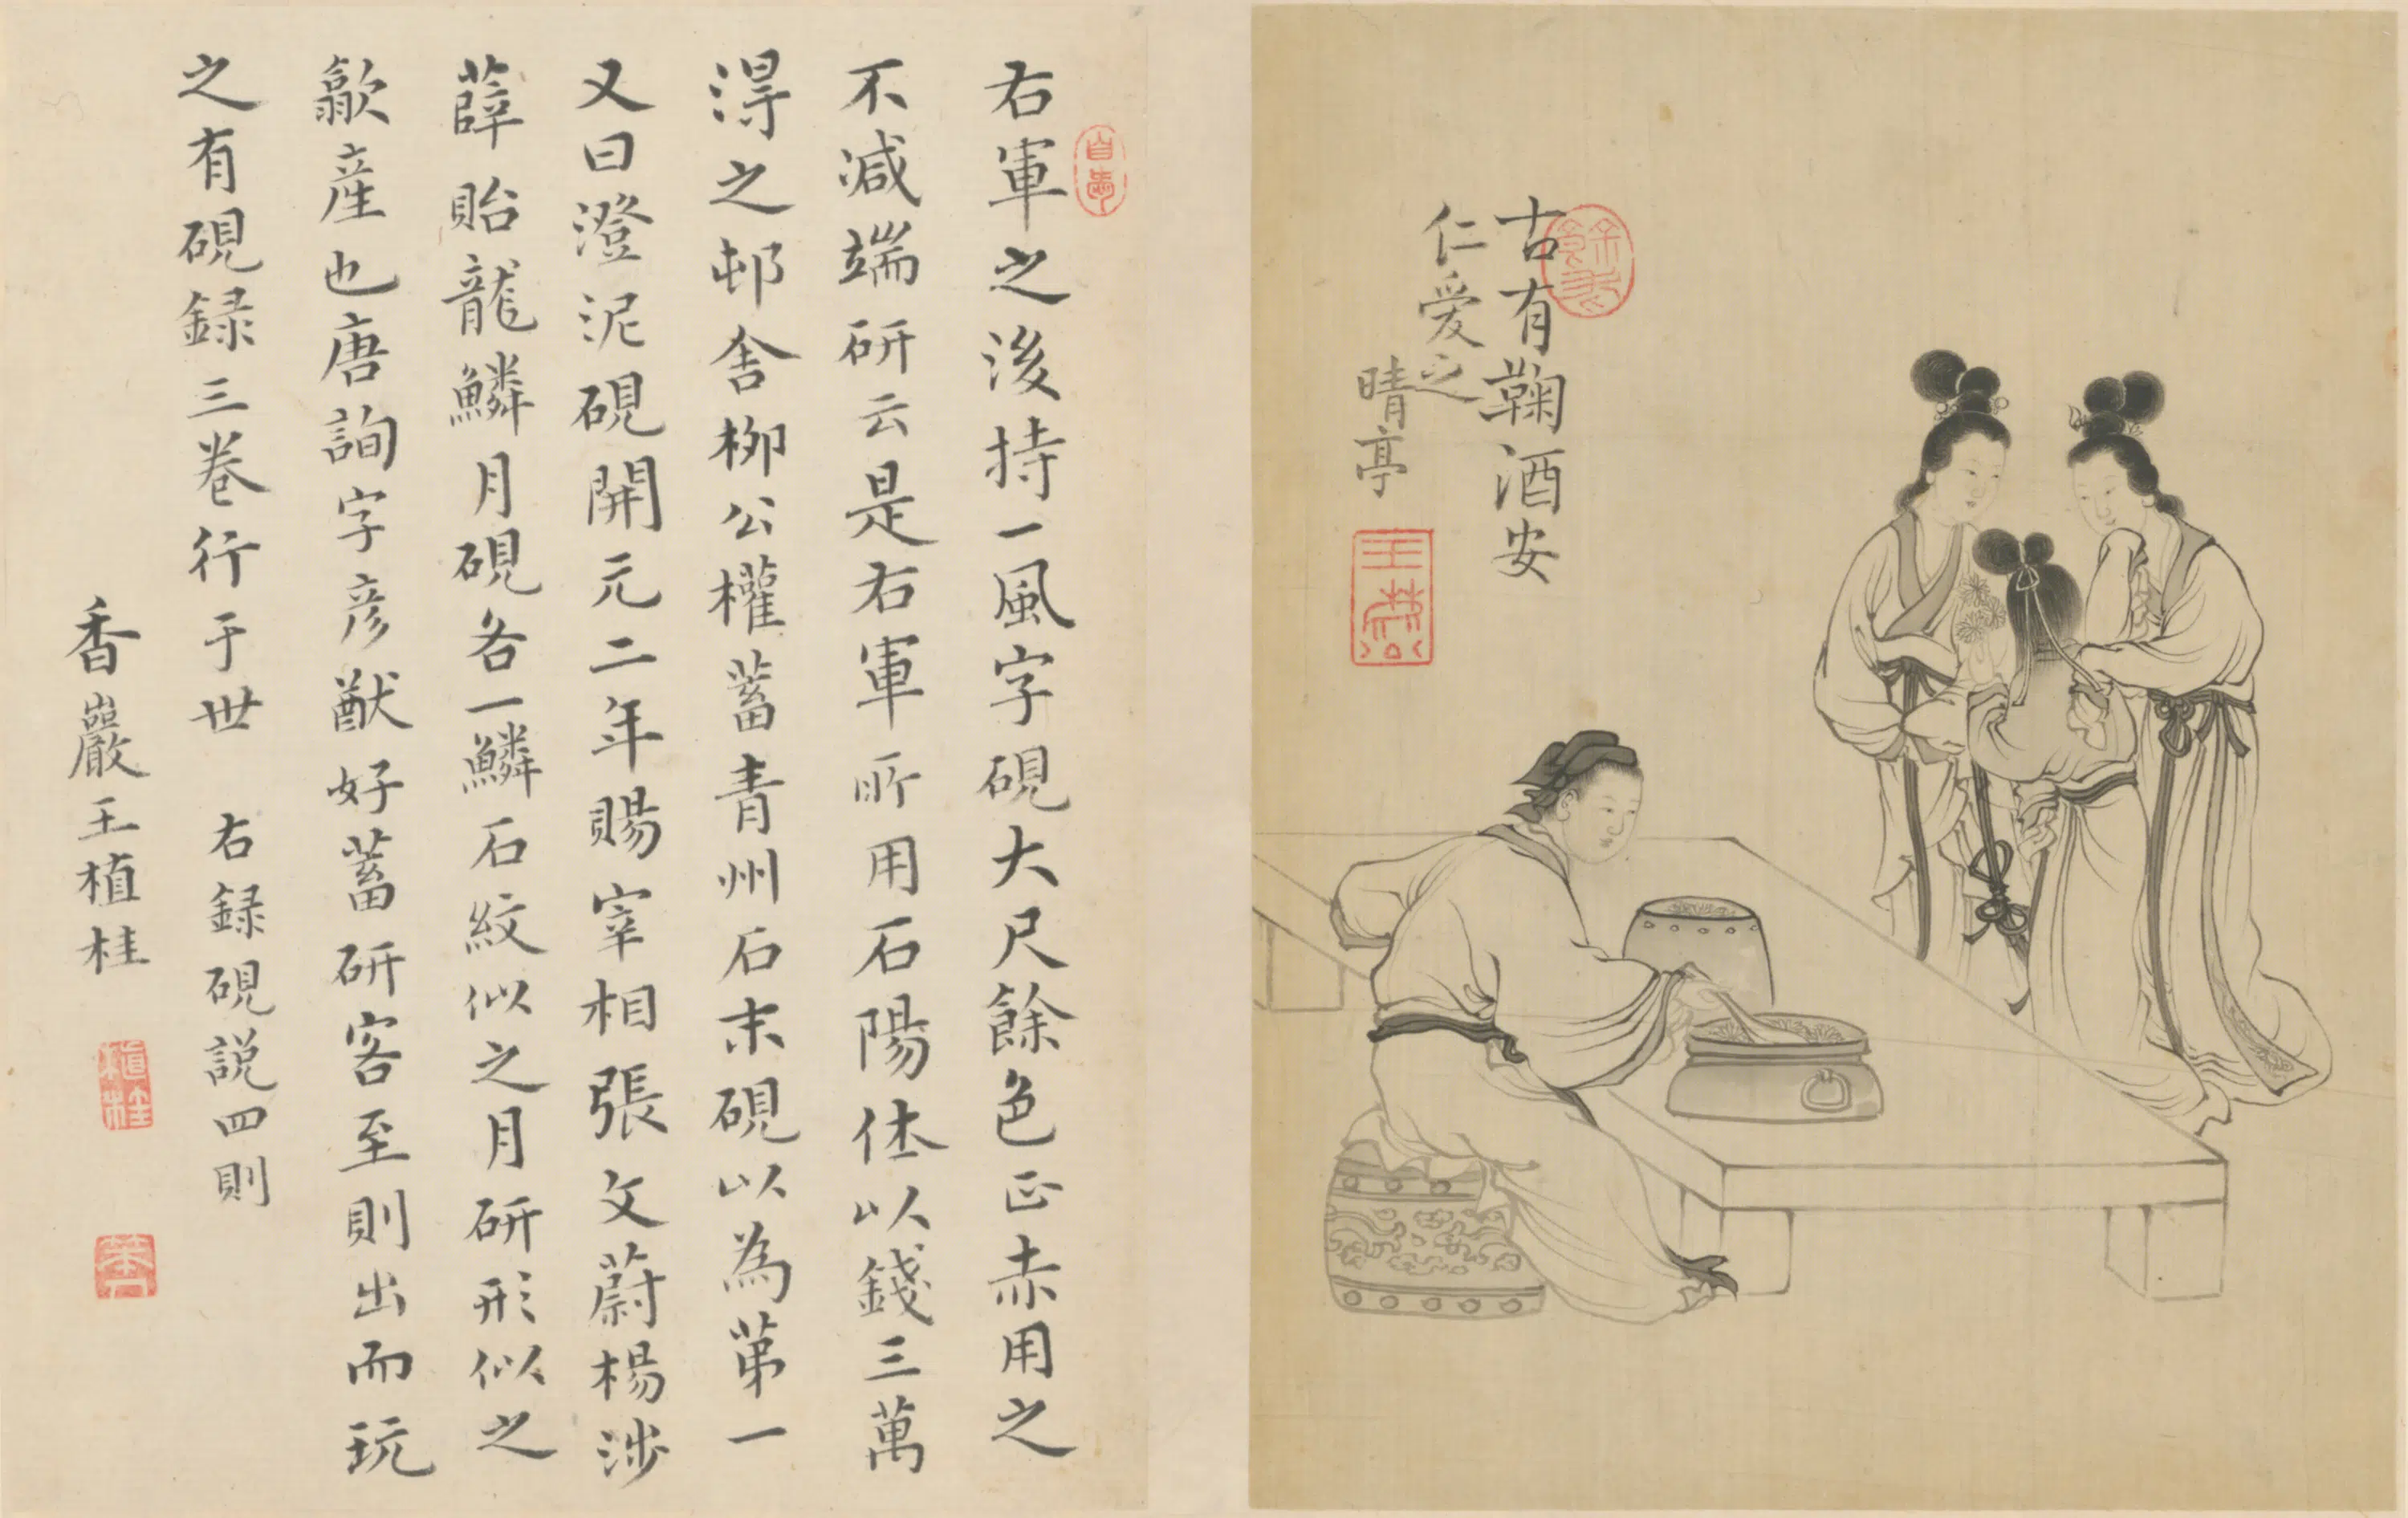 古有鞠酒安
仁爱之
晴亭
右軍之後持一風字硯大尺餘色正赤用之
不减端研云是右軍所用石陽休以錢三萬
淂之邨舍柳公權蓄青州石末硯以為苐一
又曰澄泥硯開元二年賜宰相張文蔚楊涉
薛貽龍鱗月硯各一鱗石紋似之月研形似之
歙産也唐詢字彦猷好蓄研客至則出而玩
之有硯録三卷行于世 右録硯説四則
香巖王植桂
植桂